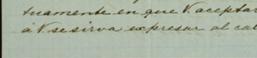 tuamente en que V. aceptar
á V. se sirva expresar al ca